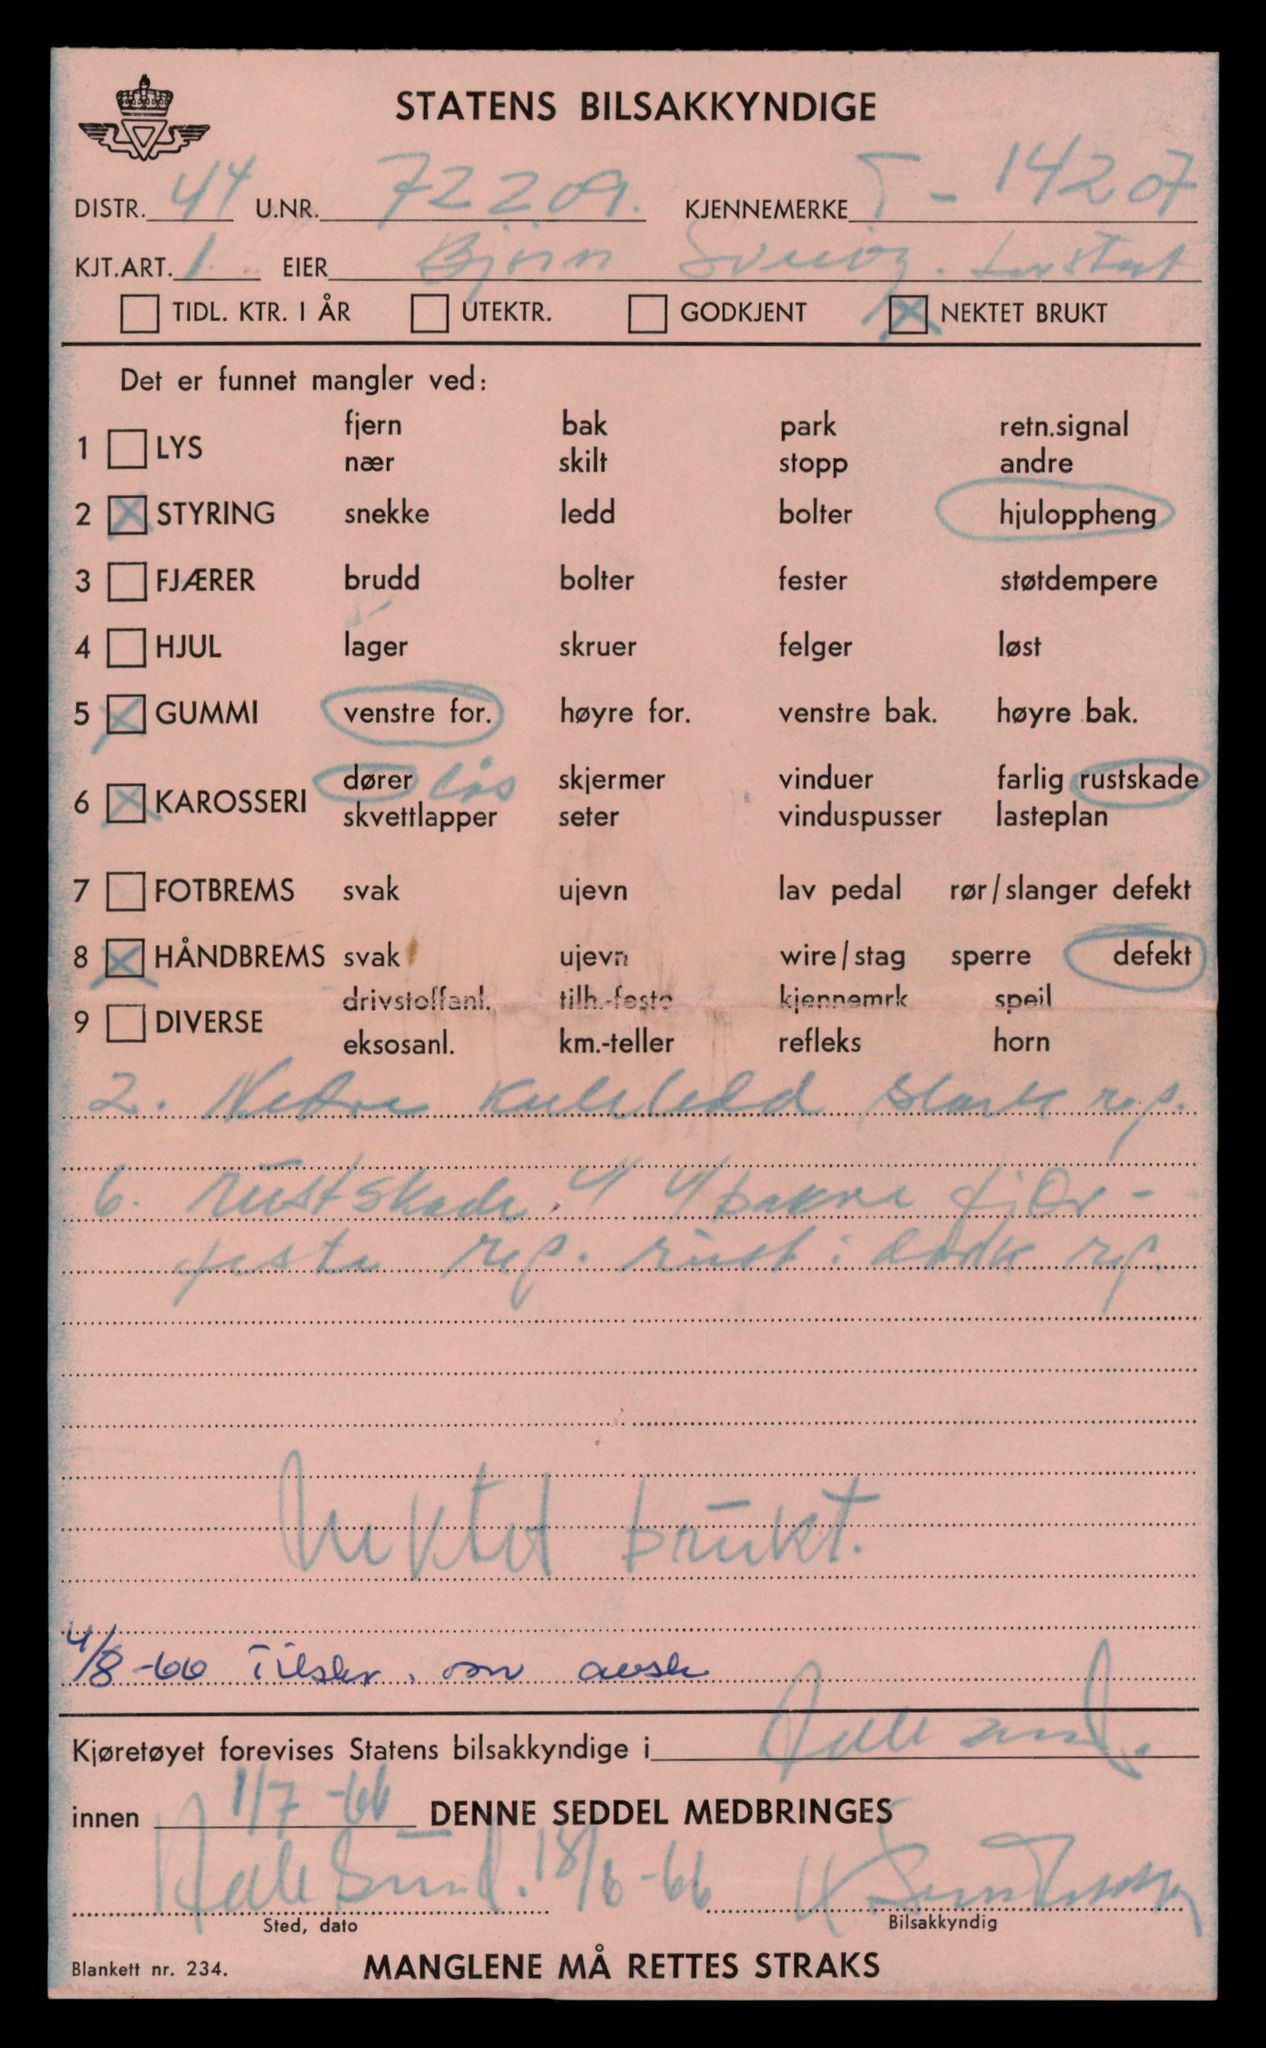 STATENS BILSAKKYNDIGE
DISTR. 44 U.NR. 72209. KJENNEMERKE T - 14207
KJT.ART. 1 EIER Bjørn
TIDL. KTR. I ÅR UTEKTR. GODKJENT NEKTET BRUKT
Det er funnet mangler ved:
fjern bak park retn.signal
1 LYS
nær skilt stopp andre
2 STYRING snekke ledd bolter hjuloppheng
3 FJÆRER brudd bolter fester støtdempere
4 HJUL lager skruer felger løst
5 GUMMI venstre for. høyre for. venstre bak. høyre bak.
dører lås skjermer vinduer farlig rustskade
6 KAROSSERI
skvettlapper seter vinduspusser lasteplan
7 FOTBREMS svak ujevn lav pedal rør/slanger defekt
8 HÅNDBREMS svak ujevn wire/stag sperre defekt
drivstoffanl. tilh.-feste kjennemrk speil
9 DIVERSE
eksosanl. km.-teller refleks horn
2. Nedre kuleledd slark rep.
6. rustskade. bakre fjær-
feste rep. rust i dørk rep.
Nektet brukt.
4/8-66 Tilskr. om avsk
Kjøretøyet forevises Statens bilsakkyndige i Aalesund.
innen 1/7-66 DENNE SEDDEL MEDBRINGES
Aalesund. 18/6-66
Sted, dato Bilsakkyndig
Blankett nr. 234. MANGLENE MÅ RETTES STRAKS